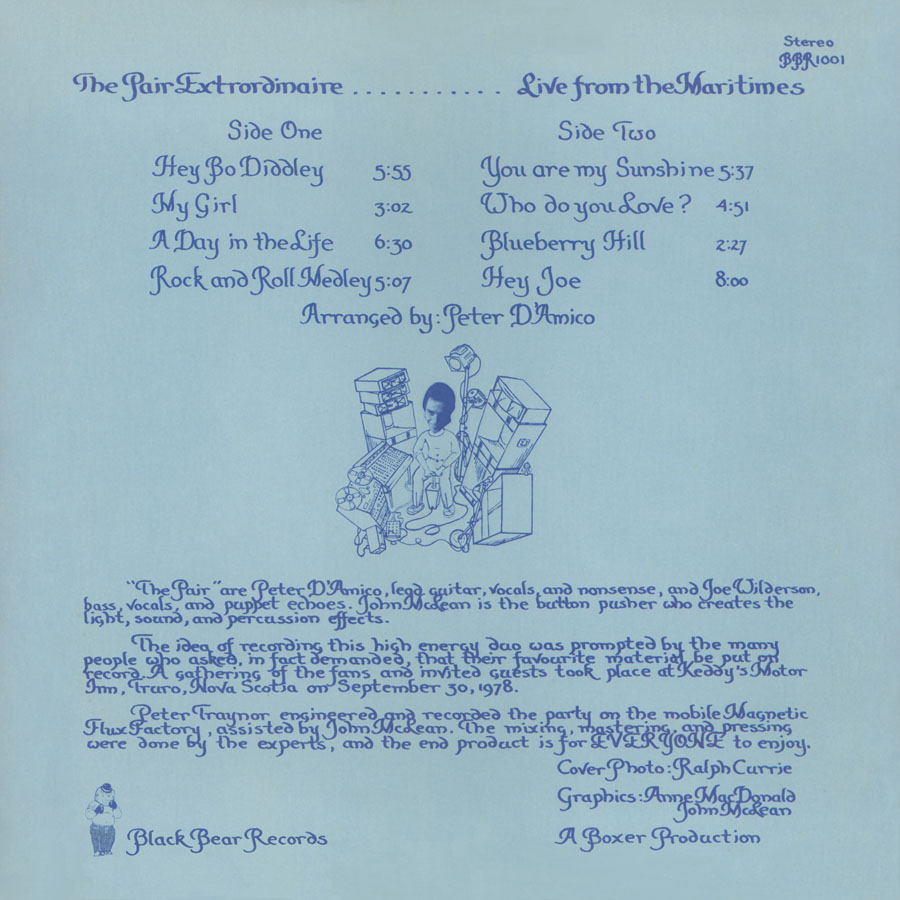 Stereo
BBR1001
The Pair Extrordinaire . . . . . . . . . . . Live from the Maritimes
Side One
Hey Bo Diddley 5:55
My Girl 3:02
A Day in the Life 6:30
Rock and Roll Medley 5:07
Side Two
You are my Sunshine 5:37
Who do you Love? 4:51
Blueberry Hill 2:27
Hey Joe 8:00
Arranged by: Peter D'Amico
"The Pair" are Peter D'Amico, lead guitar, vocals, and nonsense, and Joe Wilderson,
bass, vocals, and puppet echoes. John McLean is the button pusher who creates the
light, sound, and percussion effects.
The idea of recording this high energy duo was prompted by the many
people who asked, in fact demanded, that their favourite material be put on
record. A gathering of the fans and invited guests took place at Keddy's Motor
Inn, Truro, Nova Scotia on September 30, 1978.
Peter Traynor engineered and recorded the party on the mobile Magnetic
Flux Factory, assisted by John McLean. The mixing, mastering, and pressing
were done by the experts, and the end product is for EVERYONE to enjoy.
Cover Photo: Ralph Currie
Graphics: Anne MacDonald
John McLean
Black Bear Records
A Boxer Production